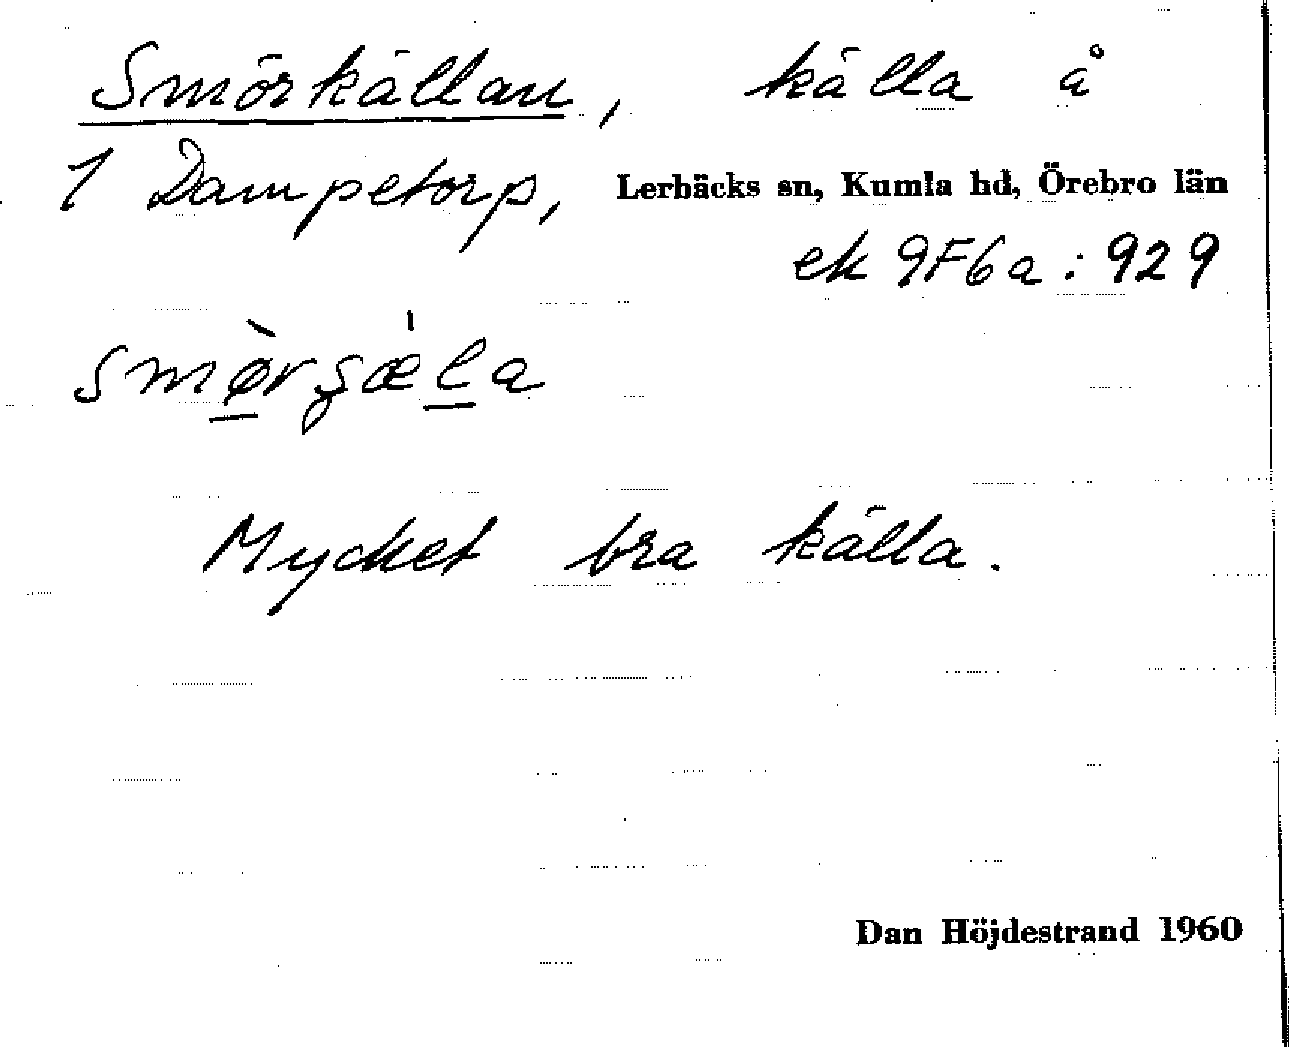 Smörkällan, källa å
1 Dampetorp, Lerbäcks sn, Kumla hd, Örebro län
ek 9F6a:929
smø̠̀rʂæ̀l̠a
Mycket bra källa.
Dan Höjdestrand 1960